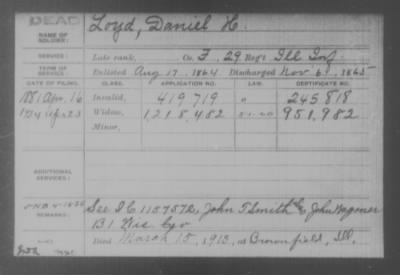 DEAD
NAME OF SOLDIER: Loyd, Daniel H.
SERVICE: Late rank, Co. F, 29 Reg't Ill Inf
TERM OF SERVICE: Enlisted Aug 17, 1864 Discharged Nov. 6, 1865
DATE OF FILING. CLASS. APPLICATION NO. LAW. CERTIFICATE NO.
1881 Apr. 16 Invalid, 419719 " 245.818
Widow, 1218,482 951,982
Minor,
ADDITIONAL SERVICES:
REMARKS: See I C 1157572, John T Smith &c John Wagoner
B 1
Died March 15, 1913, at Brownfield, Ill.